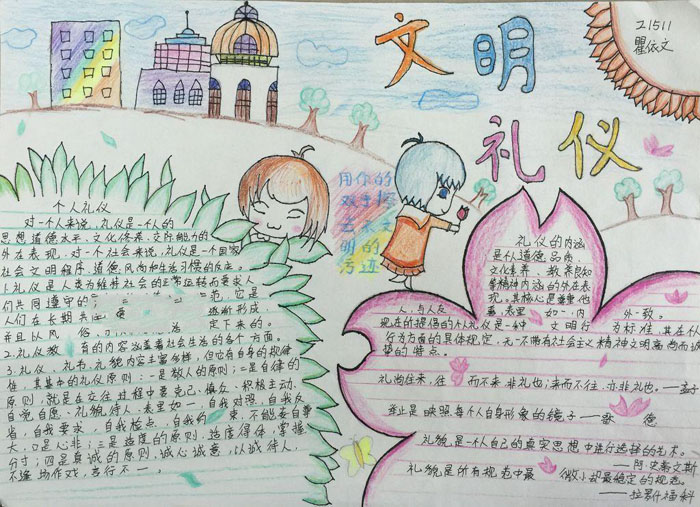 文明
礼仪
21511
瞿依文
用你的
双手擦
去
明的
污迹
个人礼仪
对一个人来说，礼仪是一个人的
思想道德水平、文化修养、交际能力的
外在表现，对一个社会来说，礼仪是一个国家
社会文明程序、道德风尚和生活习惯的反应。
1.礼仪是人类为维射社会的正常运转而要求人
们共同遵守的 范，它是
人们在长期共 逐渐形成，
并且以风俗、 定下来的。
2.礼仪教 育的内容涵盖着社会生活的各个方面。
3.礼仪、礼节、礼貌内容丰富多样，但它有自身的规律
性，其基中的礼仪原则：一是敬人的原则；二是自律的
原则，就是在交往过程中要克己、慎反、积极主动、
自觉自愿、礼貌待人、表里如一，自我对照，自我反
省，自我要求，自我检点，自我约束，不能妄自尊
大，口是心非；三是适度的原则，适度得体，掌握
分寸；四是真诚的原则，诚心诚意，以诚待人，
不逢场作戏，言行不一。
礼仪的内涵
是从道德品质、
文化素养、教养良知
等精神内涵的外在表
现。其核心是尊重他
人，表里如一，内外一致。
人，与人反
现在的提倡的个人礼仪是一种文明行为标准，其在个人
行为方面的具体规定，无一不带有社会主义精神文明高尚而诚
挚的特点。
礼尚往来，往而不来，非礼也；来而不往，亦非礼也。——孟子
举止是映照每个人自身形象的镜子——歌德
礼貌是一个人自己的真实思想中进行选择的艺术。
——阿·史蒂文斯
礼貌是所有规范中最微小却最稳定的规范。
——拉罗什福科